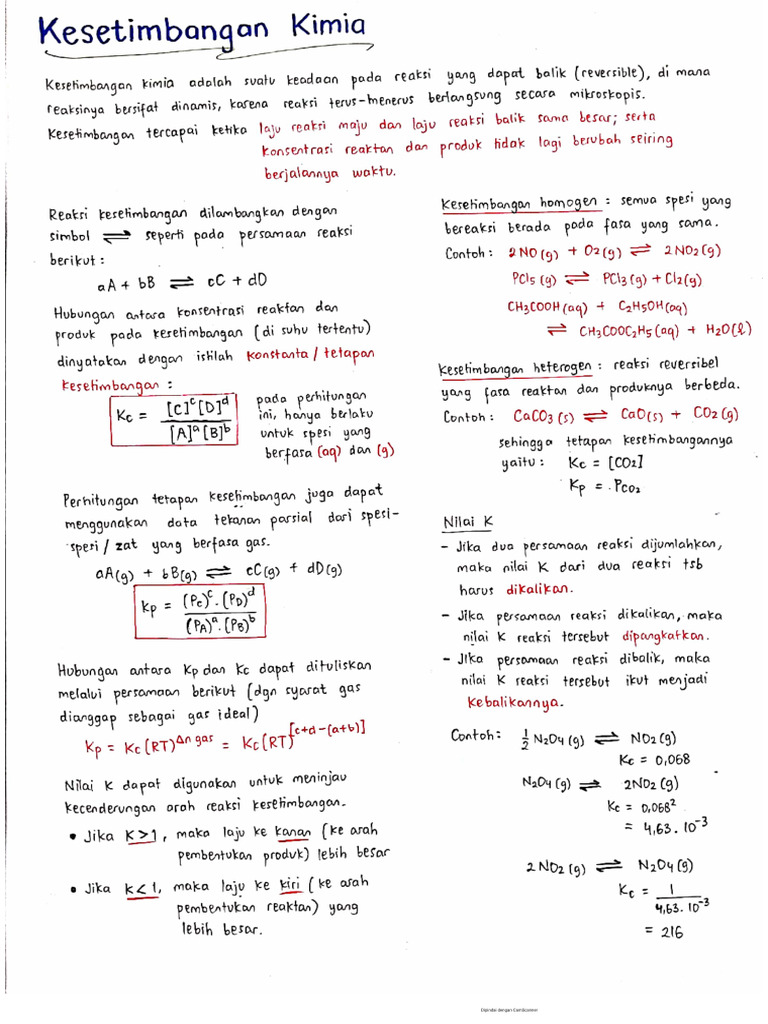 Kesetimbangan Kimia
Kesetimbangan kimia adalah suatu keadaan pada reaksi yang dapat balik (reversible), di mana
reaksinya bersifat dinamis, karena reaksi terus-menerus berlangsung secara mikroskopis.
Kesetimbangan tercapai ketika laju reaksi maju dan laju reaksi balik sama besar; serta
konsentrasi reaktan dan produk tidak lagi berubah seiring
berjalannya waktu.
Reaksi kesetimbangan dilambangkan dengan
simbol ⇌ seperti pada persamaan reaksi
berikut :
aA + bB ⇌ cC + dD
Hubungan antara konsentrasi reaktan dan
produk pada kesetimbangan (di suhu tertentu)
dinyatakan dengan istilah konstanta / tetapan
kesetimbangan :
Kc = [C]ᶜ[D]ᵈ / [A]ᵃ[B]ᵇ
pada perhitungan
ini, hanya berlaku
untuk spesi yang
berfasa (aq) dan (g)
Perhitungan tetapan kesetimbangan juga dapat
menggunakan data tekanan parsial dari spesi-
spesi / zat yang berfasa gas.
aA(g) + bB(g) ⇌ cC(g) + dD(g)
Kp = (Pc)ᶜ . (PD)ᵈ / (PA)ᵃ . (PB)ᵇ
Hubungan antara Kp dan Kc dapat dituliskan
melalui persamaan berikut (dgn syarat gas
dianggap sebagai gas ideal)
Kp = Kc (RT)^Δn gas = Kc (RT)^[c+d-(a+b)]
Nilai K dapat digunakan untuk meninjau
kecenderungan arah reaksi kesetimbangan.
• Jika K > 1, maka laju ke kanan (ke arah
pembentukan produk) lebih besar
• Jika K < 1, maka laju ke kiri (ke arah
pembentukan reaktan) yang
lebih besar.
Kesetimbangan homogen : semua spesi yang
bereaksi berada pada fasa yang sama.
Contoh : 2NO(g) + O2(g) ⇌ 2NO2(g)
PCl5(g) ⇌ PCl3(g) + Cl2(g)
CH3COOH(aq) + C2H5OH(aq)
⇌ CH3COOC2H5(aq) + H2O(l)
Kesetimbangan heterogen : reaksi reversibel
yang fasa reaktan dan produknya berbeda.
Contoh : CaCO3(s) ⇌ CaO(s) + CO2(g)
sehingga tetapan kesetimbangannya
yaitu : Kc = [CO2]
Kp = PCO2
Nilai K
- Jika dua persamaan reaksi dijumlahkan,
maka nilai K dari dua reaksi tsb
harus dikalikan.
- Jika persamaan reaksi dikalikan, maka
nilai K reaksi tersebut dipangkatkan.
- Jika persamaan reaksi dibalik, maka
nilai K reaksi tersebut ikut menjadi
kebalikannya.
Contoh : ½ N2O4(g) ⇌ NO2(g)
Kc = 0,068
N2O4(g) ⇌ 2NO2(g)
Kc = 0,068²
= 4,63 . 10⁻³
2NO2(g) ⇌ N2O4(g)
Kc = 1 / 4,63 . 10⁻³
= 216
Dipindai dengan CamScanner